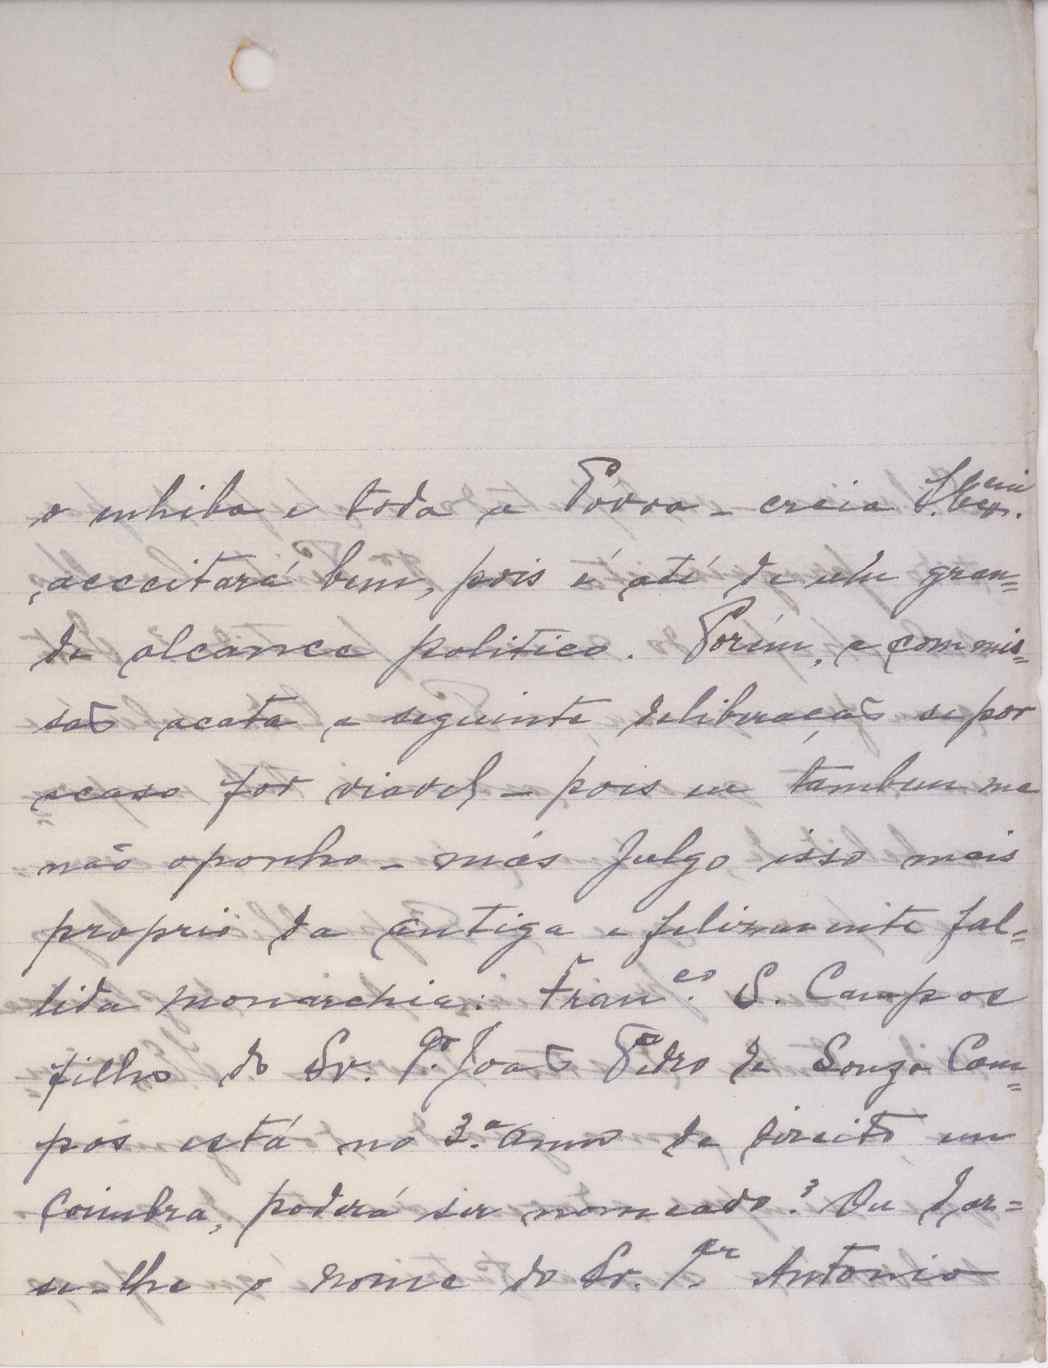 o inhiba e toda a Povoa - creia S. Ex.cia
acceitará bem, pois é até de um gran=
de alcance politico. Porém, a commis=
saõ acata a seguinte deliberaçaõ se por
acaso for viavel - pois eu tambem me
não oponho - más julgo isso mais
proprio da antiga e felizmente fal=
lida monarchia: Fran.co S. Campos
filho do Sr. Joaõ Pedro de Souza Cam=
pos está no 3.º anno de direito em
Coimbra, poderá ser nomeado? Ou dar=
se-lhe o nome do Sr. Antonio